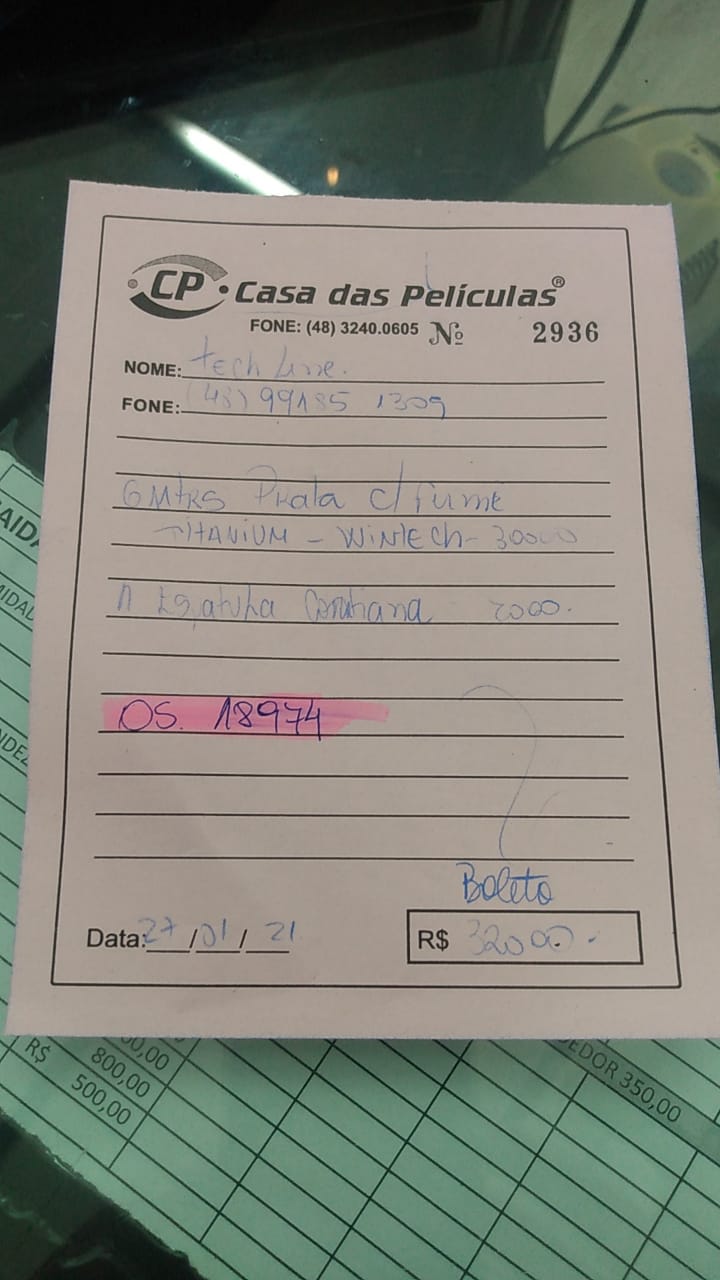 CP Casa das Películas®
FONE: (48) 3240.0605 Nº 2936
NOME: tech Line.
FONE: (48) 99185 1309
6 Mtrs Prata c/ fumê
TITANIUM - WINTECH - 30000
1 Espatula 2000.
OS. 18974
Boleto
Data: 27/01/21
R$ 32000.
SAID
R$ 800,00
500,00
DEDOR 350,00